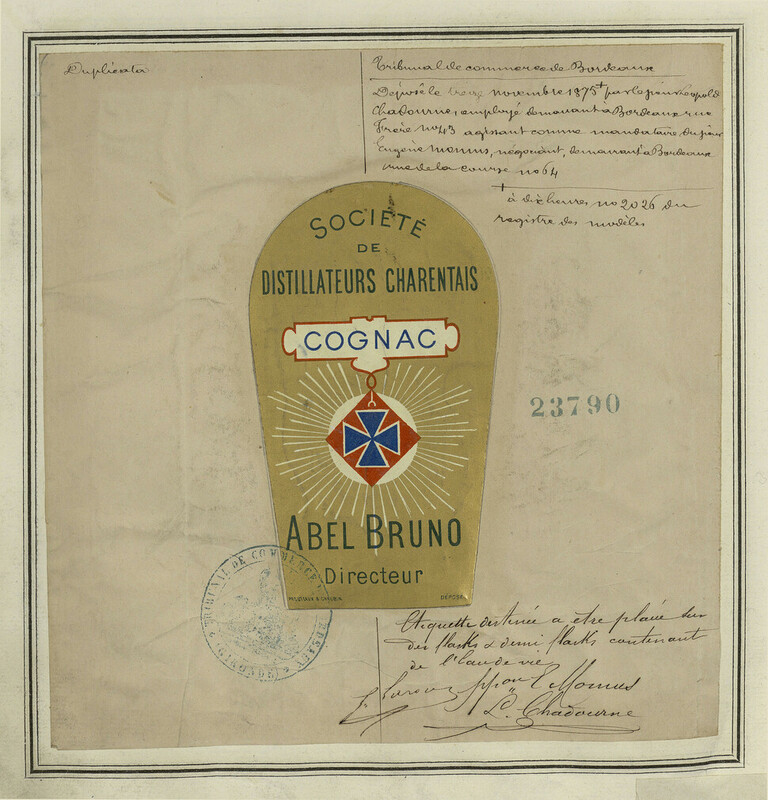 Duplicata
Tribunal de commerce de Bordeaux
Déposé le treize novembre 1875 + par le sieur Léopold
Chadourne, employé demeurant à Bordeaux rue
Frère no 43 agissant comme mandataire du sieur
Eugène Momus, négociant, demeurant à Bordeaux
rue de la course no 64
+ à dix heures no 2026 du
registre des modèles
SOCIÉTÉ
DE
DISTILLATEURS CHARENTAIS
COGNAC
23790
ABEL BRUNO
Directeur
DÉPOSÉ
TRIBUNAL DE COMMERCE BORDEAUX (GIRONDE)
Etiquette destinée a etre placée sur
des flasks & demi flasks contenant
de l'Eau de vie
ppon E Momus
L. Chadourne